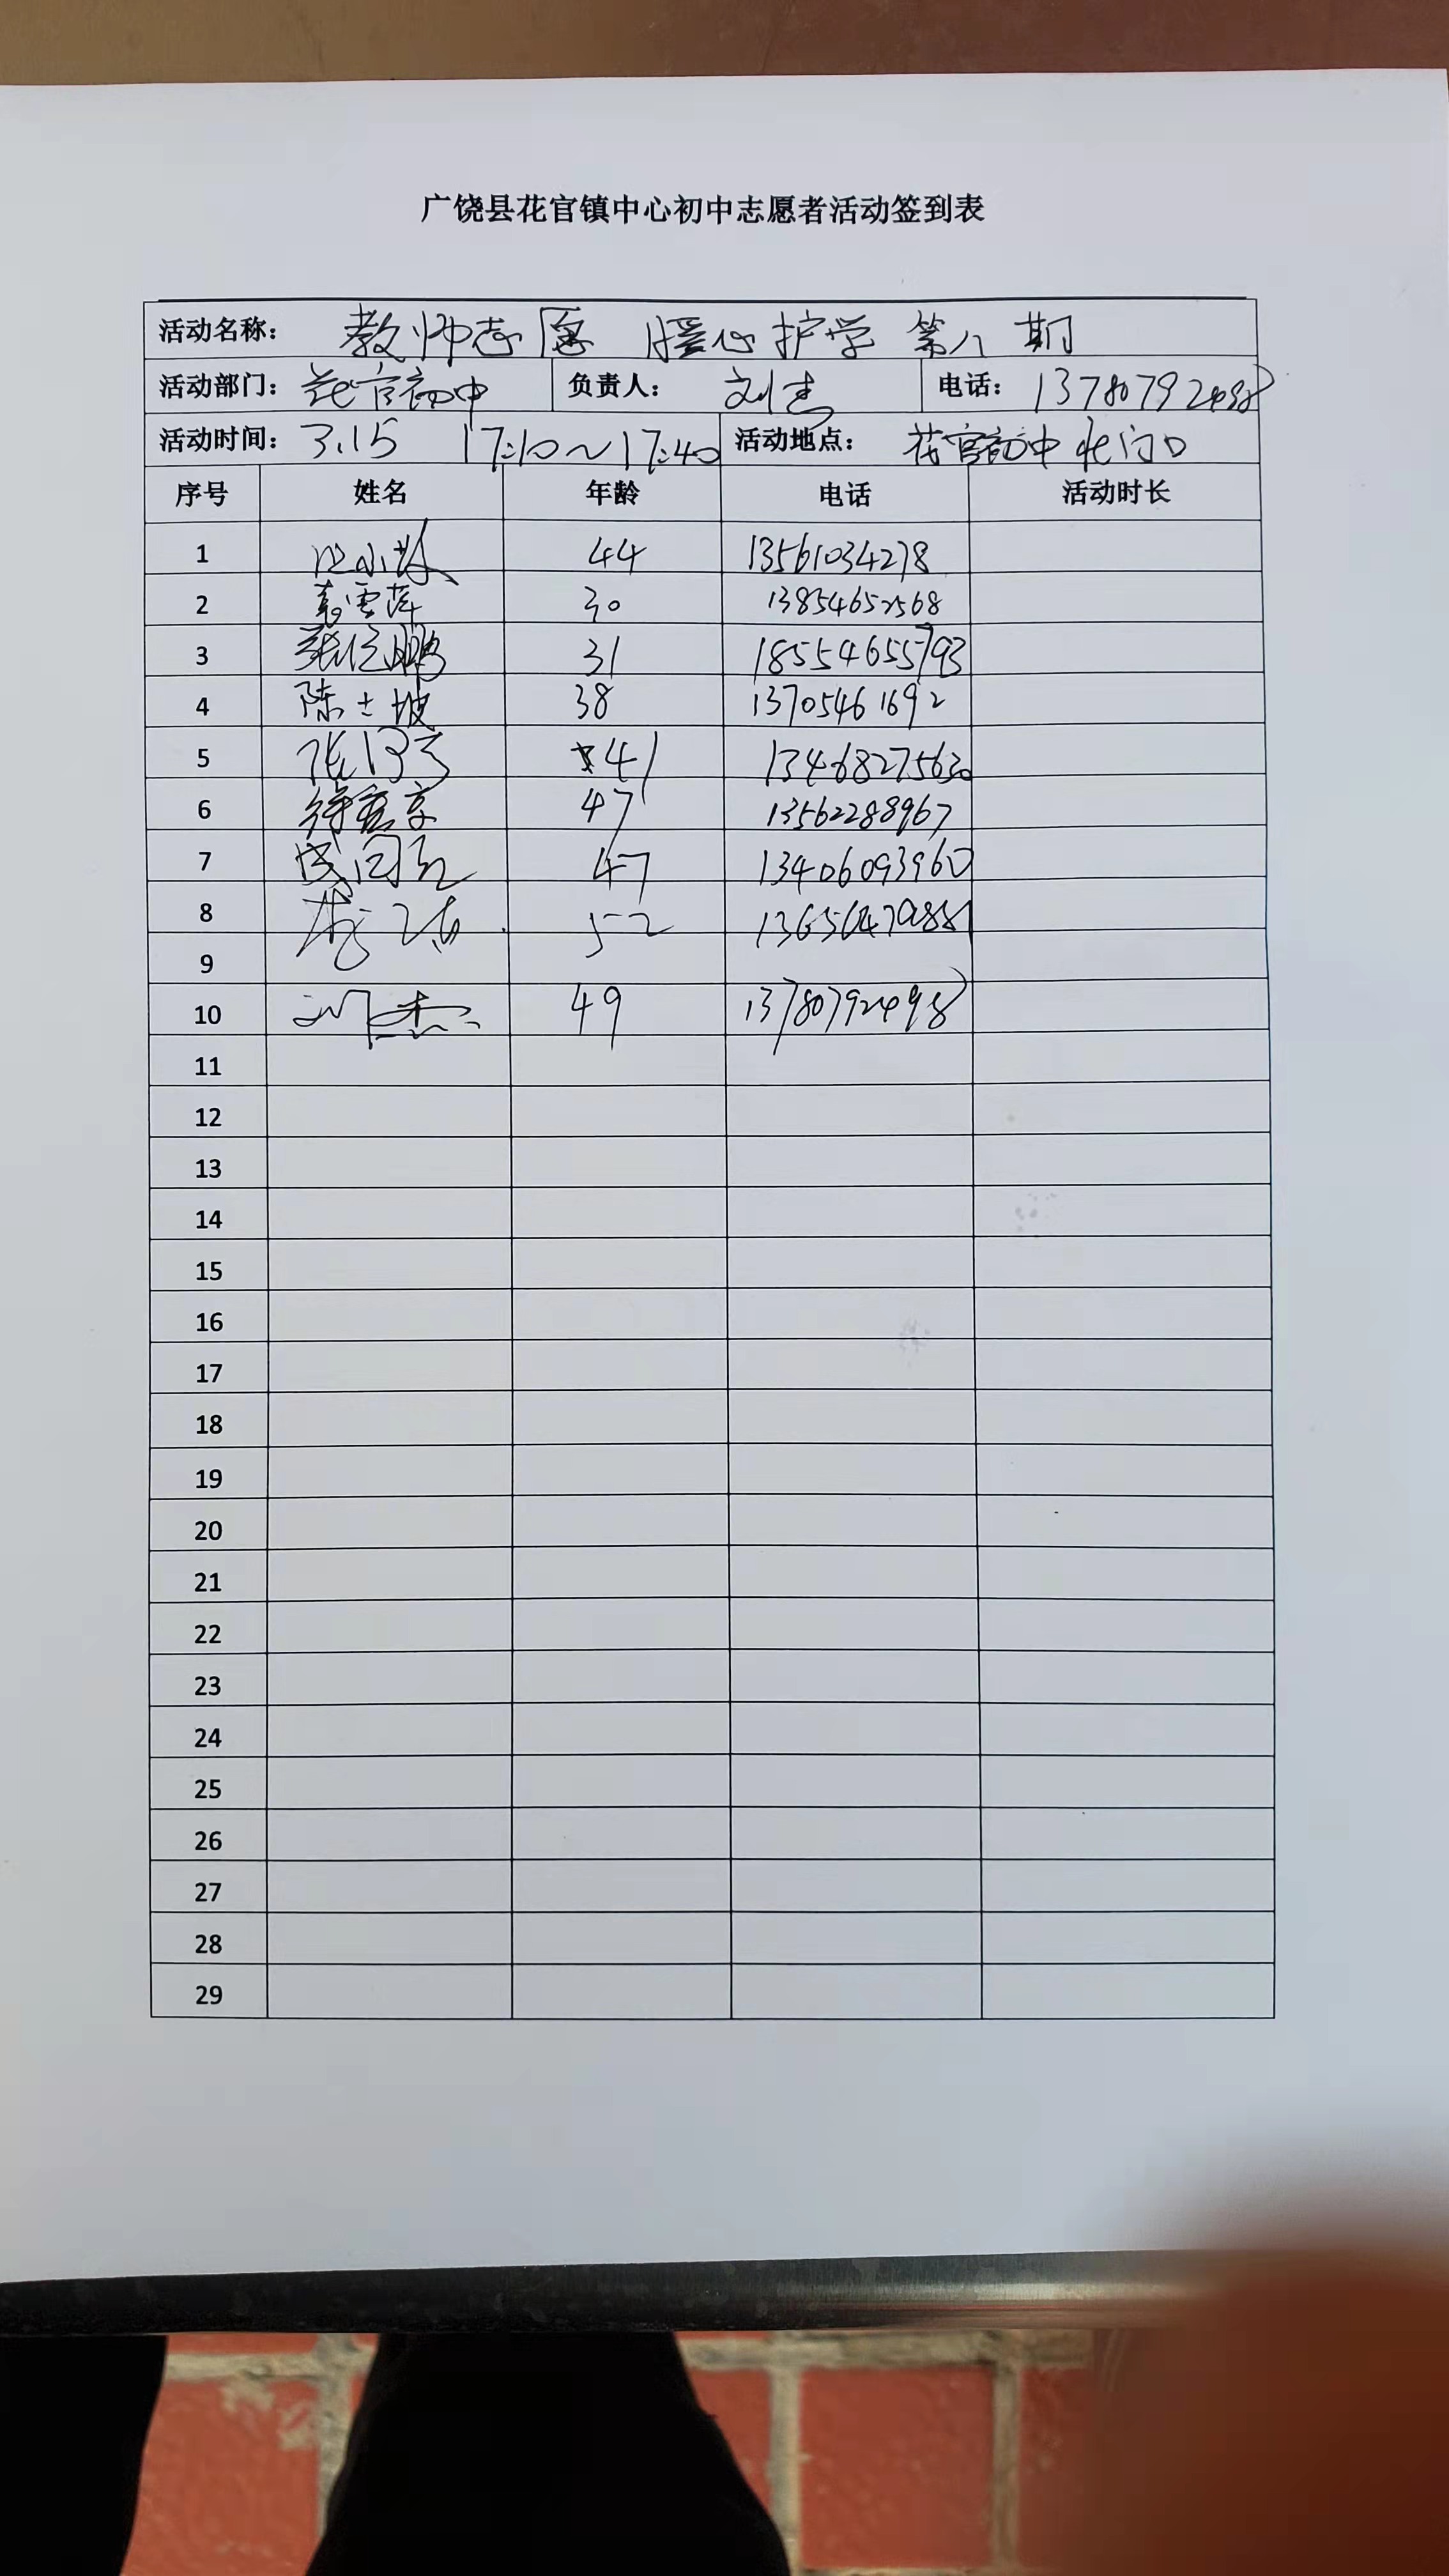 广饶县花官镇中心初中志愿者活动签到表
活动名称: 教师志愿 暖心护学 第八期
活动部门: 花官初中 负责人: 刘杰 电话: 13780792498
活动时间: 3.15 17:10~17:40 活动地点: 花官初中北门口
序号 姓名 年龄 电话 活动时长
1 44 13561034278
2 30 13854652568
3 31 18554655793
4 陈士坡 38 13705461692
5 41 13468275630
6 47 13562288967
7 47 13406093960
8 52
9
10 刘杰 49 13780792498
11
12
13
14
15
16
17
18
19
20
21
22
23
24
25
26
27
28
29